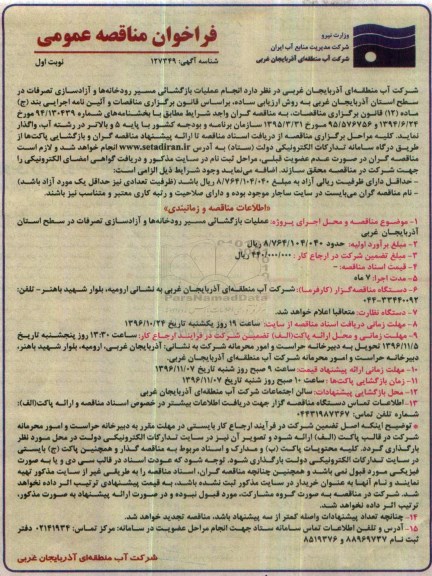 وزارت نیرو
شرکت مدیریت منابع آب ایران
شرکت آب منطقه‌ای آذربایجان غربی
فراخوان مناقصه عمومی
شناسه آگهی: ۱۲۷۳۴۹
نوبت اول
شرکت آب منطقه‌ای آذربایجان غربی در نظر دارد انجام عملیات بازگشائی مسیر رودخانه‌ها و آزادسازی تصرفات در
سطح استان آذربایجان غربی به روش ارزیابی ساده، براساس قانون برگزاری مناقصات و آئین نامه اجرایی بند (ج)
ماده (۱۲) قانون برگزاری مناقصات، به مناقصه گران واجد شرایط مطابق با بخشنامه‌های شماره ۹۴/۱۳۰۴۳۹ مورخ
۱۳۹۴/۶/۲۴ و ۹۵/۵۷۶۷۵۶ مورخ ۱۳۹۵/۳/۳۱ سازمان برنامه و بودجه کشور با پایه ۵ و بالاتر در رشته آب، واگذار
نماید. کلیه مراحل برگزاری مناقصه از دریافت اسناد مناقصه تا ارائه پیشنهاد مناقصه گران و بازگشایی پاکت‌ها از
طریق درگاه سامانه تدارکات الکترونیکی دولت (ستاد) به آدرس www.setadiran.ir انجام خواهد شد و لازم است
مناقصه گران در صورت عدم عضویت قبلی، مراحل ثبت نام در سایت مذکور و دریافت گواهی امضای الکترونیکی را
جهت شرکت در مناقصه محقق سازند. مناقصه گران می‌بایست وجود شرایط ذیل الزامی است:
- حداقل دارای ظرفیت ریالی آزاد به مبلغ ۸/۷۶۴/۱۰۴/۰۴۰ ریال باشد (ظرفیت تعدادی نیز حداقل یک مورد آزاد باشد)
- نام مناقصه گران می‌بایست در سایت ساجار موجود بوده و دارای صلاحیت و رتبه کاری معتبر و متناسب نیز باشند.
«اطلاعات مناقصه و زمانبندی»
۱- موضوع مناقصه و محل اجرای پروژه: عملیات بازگشائی مسیر رودخانه‌ها و آزادسازی تصرفات در سطح استان
آذربایجان غربی
۲- مبلغ برآورد اولیه: حدود ۸/۷۶۴/۱۰۴/۰۴۰ ریال
۳- مبلغ تضمین شرکت در ارجاع کار: ۴۴۰/۰۰۰/۰۰۰ ریال
۴- قیمت اسناد مناقصه: -
۵- مدت اجرا: ۷ ماه
۶- دستگاه مناقصه‌گزار (کارفرما): شرکت آب منطقه‌ای آذربایجان غربی به نشانی ارومیه، بلوار شهید باهنر- تلفن:
۰۴۴-۳۳۴۴۰۰۹۲
۷- دستگاه نظارت: متعاقبا اعلام خواهد شد.
۸- مهلت زمانی دریافت اسناد مناقصه از سایت: ساعت ۱۹ روز یکشنبه تاریخ ۱۳۹۶/۱۰/۲۴
۹- مهلت زمانی و محل ارائه پاکت(الف) تضمین شرکت در فرآیند ارجاع کار: ساعت ۱۳:۳۰ روز پنجشنبه تاریخ
۱۳۹۶/۱۱/۵ تحویل به دبیرخانه حراست و امور محرمانه شرکت به نشانی: آذربایجان غربی، ارومیه، بلوار شهید باهنر،
دبیرخانه حراست و امور محرمانه شرکت آب منطقه‌ای آذربایجان غربی.
۱۰- مهلت زمانی ارائه پیشنهاد قیمت: ساعت ۹ صبح روز شنبه تاریخ ۱۳۹۶/۱۱/۰۷
۱۱- زمان بازگشایی پاکت‌ها: ساعت ۱۰ صبح روز شنبه تاریخ ۱۳۹۶/۱۱/۰۷
۱۲- محل بازگشایی پیشنهادات: سالن اجتماعات شرکت آب منطقه‌ای آذربایجان غربی
۱۳- اطلاعات تماس دستگاه مناقصه گزار جهت دریافت اطلاعات بیشتر در خصوص اسناد مناقصه و ارائه پاکت(الف):
شماره تلفن تماس: ۰۴۴۳۱۹۸۷۳۶۷
* توضیح اینکه اصل تضمین شرکت در فرآیند ارجاع کار بایستی در مهلت مقرر به دبیرخانه حراست و امور محرمانه
شرکت در قالب پاکت (الف) ارائه شود و تصویر آن نیز در سایت تدارکات الکترونیکی دولت در محل مورد نظر
بارگذاری گردد. کلیه محتویات پاکت (ب) و مدارک و اسناد مربوط به مناقصه گذار و همچنین پاکت (ج) بایستی
در سایت تدارکات الکترونیکی دولت بارگذاری شود. توجه شود که عودت اسناد در قالب سی دی و یا به صورت
فیزیکی مورد قبول نمی باشد و همچنین چنانچه مناقصه گران، اسناد مناقصه را به طریقی غیر از سایت مذکور تهیه
نمایند و نام آنها به عنوان خریدار در سایت مذکور ثبت نشده باشد، به قیمت پیشنهادی ترتیب اثر داده نخواهد
شد. شرکت در مناقصه به صورت گروه مشارکت، مورد قبول نبوده و در صورت ارائه پیشنهاد به صورت مذکور،
ترتیب اثر داده نخواهد شد.
۱۴- چنانچه تعداد پیشنهادات واصله کمتر از سه پیشنهاد باشد، مناقصه تجدید خواهد شد.
۱۵- آدرس و تلفن اطلاعات تماس سامانه ستاد جهت انجام مراحل عضویت در سامانه: مرکز تماس: ۰۲۱۴۱۹۳۴ دفتر
ثبت نام ۸۸۹۶۹۷۳۷ و ۸۵۱۹۳۷۶۸
شرکت آب منطقه‌ای آذربایجان غربی